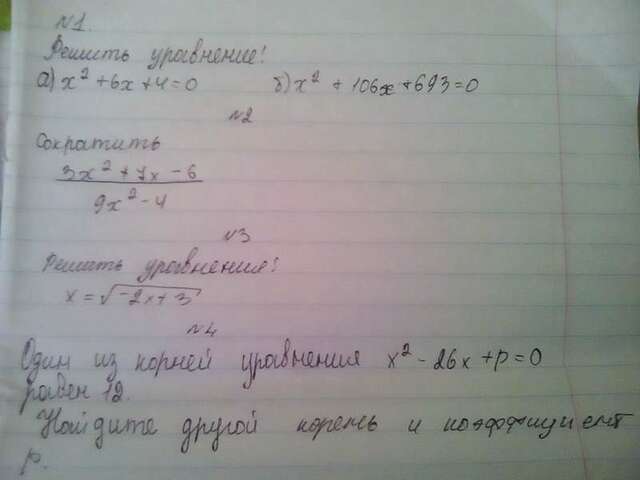 №1.
Решить уравнение!
а) x² + 6x + 4 = 0 б) x² + 106x + 693 = 0
№2
Сократить
3x² + 7x - 6
9x² - 4
№3
Решить уравнения!
x = √-2x + 3
№4
Один из корней уравнения x² - 26x + p = 0
равен 12.
Найдите другой корень и коэффициент
p.